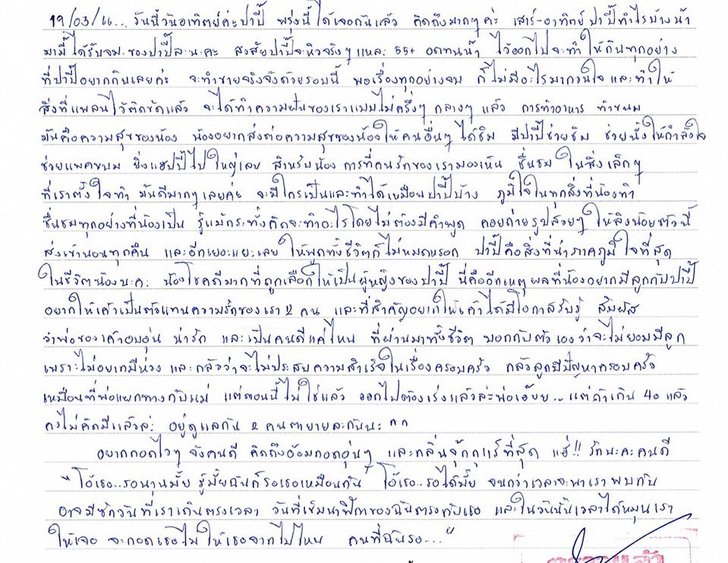 19/03/66... วันนี้วันอาทิตย์ค่ะปาปี๊ พรุ่งนี้ได้เจอกันแล้ว คิดถึงมากๆค่ะ เสาร์-อาทิตย์ ปาปี๊ทำไรบ้างน้า
มามี๊ได้รับจม.ของปาปี๊ละนะคะ สงสัยปาปี๊จะหิวจริงๆแหละ 55+ อดทนน้า ไว้ออกไปจะทำให้กินทุกอย่าง
ที่ปาปี๊อยากกินเลยค่ะ จะทำขายจริงจังด้วยรอบนี้ พอเรื่องทุกอย่างจบ ก็ไม่มีอะไรมากวนใจ และทำให้
สิ่งที่แพลนไว้ติดขัดแล้ว จะได้ทำความฝันของเราแบบไม่ครึ่งๆ กลางๆ แล้ว การทำอาหาร ทำขนม
มันคือความสุขของน้อง น้องอยากส่งต่อความสุขของน้องให้คนอื่นๆ ได้ชิม มีปาปี๊ช่วยชิม ช่วยนั่งให้กำลังใจ
ช่วยแพคขนม ยิ่งแฮปปี้ไปใหญ่เลย สำหรับน้อง การที่คนรักของเรามองเห็น ชื่นชม ในสิ่งเล็กๆ
ที่เราตั้งใจทำ มันดีมากๆเลยค่ะ จะมีใครเป็นและทำได้เหมือนปาปี๊บ้าง ภูมิใจในทุกสิ่งที่น้องทำ
ชื่นชมทุกอย่างที่น้องเป็น รู้แม้กระทั่งคิดจะทำอะไรโดยไม่ต้องมีคำพูด คอยถ่ายรูปสวยๆ ให้ลิงน้อยตัวนี้
ส่งเข้านอนทุกคืน และอีกเยอะแยะเลย ให้พูดทั้งชีวิตก็ไม่หมดหรอก ปาปี๊คือสิ่งที่น่าภาคภูมิใจที่สุด
ในชีวิตน้องนะคะ น้องโชคดีมากที่ถูกเลือกให้เป็นผู้หญิงของปาปี๊ นี่คืออีกเหตุผลที่น้องอยากมีลูกกับปาปี๊
อยากให้เค้าเป็นตัวแทนความรักของเรา 2 คน และที่สำคัญอยากให้เค้าได้มีโอกาสรับรู้ สัมผัส
ว่าพ่อของเค้าอบอุ่น น่ารัก และเป็นคนดีแค่ไหน ที่ผ่านมาทั้งชีวิต บอกกับตัวเองว่าจะไม่ยอมมีลูก
เพราะไม่อยากมีห่วง และกลัวว่าจะไม่ประสบความสำเร็จในเรื่องครอบครัว กลัวลูกมีปัญหาครอบครัว
เหมือนที่พ่อแยกทางกับแม่ แต่ตอนนี้ไม่ใช่แล้ว ออกไปต้องเร่งแล้วล่ะพ่อเอ๊ย... แต่ถ้าเกิน 40 แล้ว
คงไม่คิดมีแล้วล่ะ อยู่ดูแลกัน 2 คนตายายละกันนะ ^^
อยากกอดไวๆ จังคนดี คิดถึงอ้อมกอดอุ่นๆ และกลิ่นจุ๊กกุแร้ที่สุด แฮ่!! รักนะคะคนดี
"โอ้เธอ..รอนานมั้ย รู้มั้ยฉันก็รอเธอเหมือนกัน โอ้เธอ..รอได้มั้ย จนกว่าเวลาจะพาเราพบกัน
อาจมีซักวันที่เราเดินตรงเวลา วันที่เข็มนาฬิกาของฉันตรงกับเธอ และในวันนั้นเวลาได้หมุนเรา
ให้เจอ จะกอดเธอไม่ให้เธอจากไปไหน คนที่ฉันรอ..."